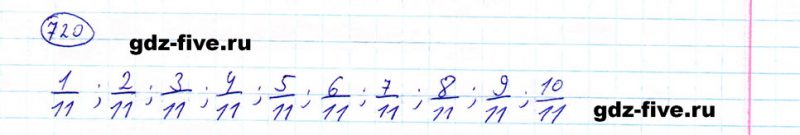 720
gdz-five.ru
1/11 ; 2/11 ; 3/11 ; 4/11 ; 5/11 ; 6/11 ; 7/11 ; 8/11 ; 9/11 ; 10/11
gdz-five.ru